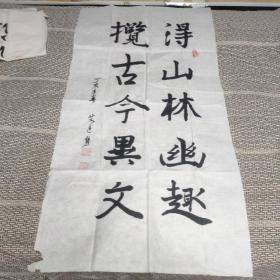 得山林幽趣
攬古今異文